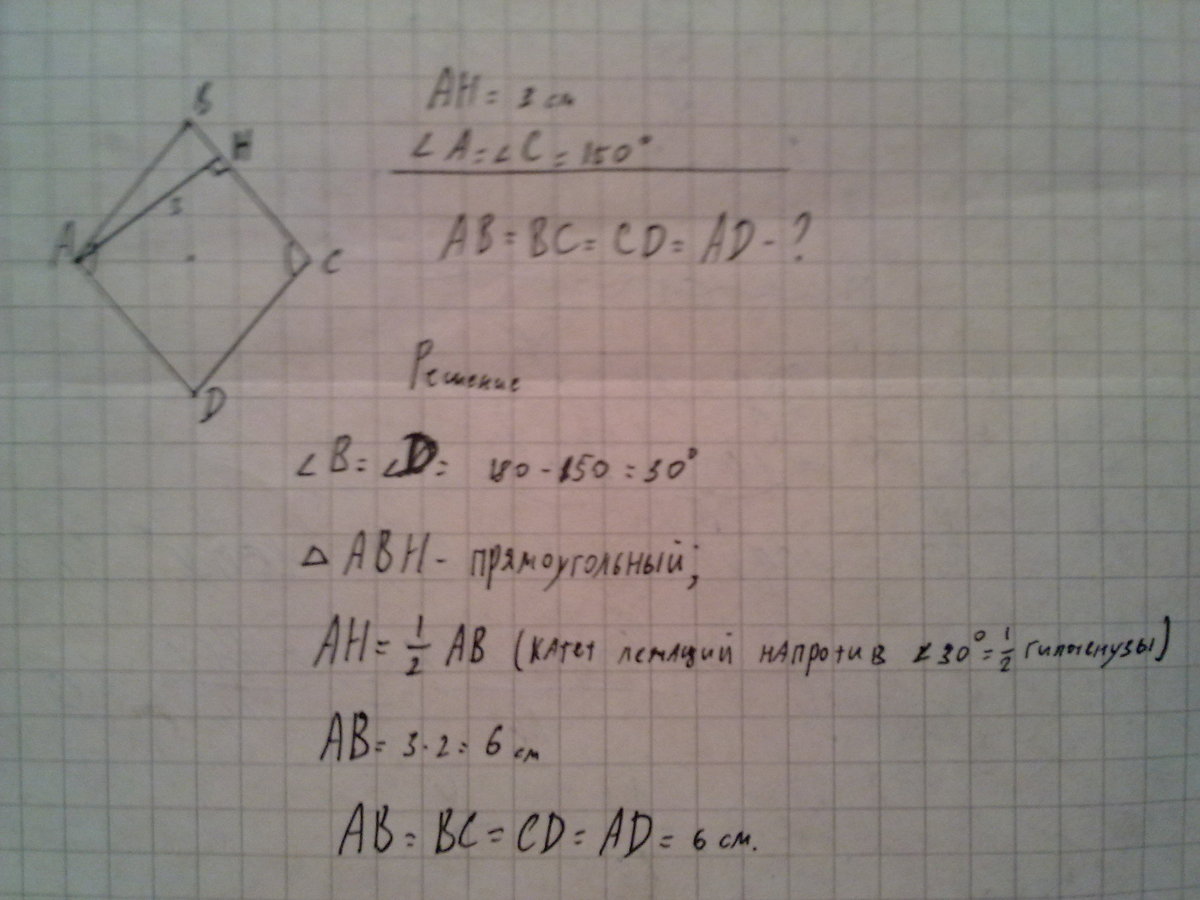 B
H
A
3
C
D
AH = 3 см
∠A = ∠C = 150°
AB = BC = CD = AD - ?
Решение
∠B = ∠D = 180 - 150 = 30°
△ ABH - прямоугольный;
AH = 1/2 AB (катет лежащий напротив ∠30° = 1/2 гипотенузы)
AB = 3 · 2 = 6 см
AB = BC = CD = AD = 6 см.